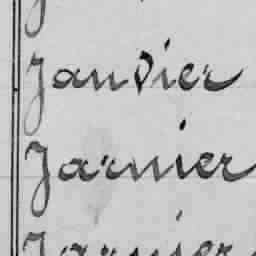 Janvier
Jarnier